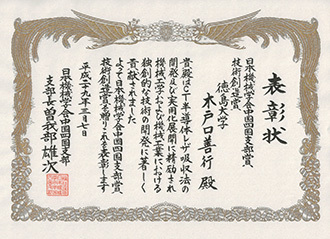 表彰状
日本機械学会中国四国支部賞
技術創造賞
徳島大学
木戸口善行 殿
貴殿はCT半導体レーザ吸収法の
開発及び実用化展開に精励され
機械工学および機械工業における
独創的な技術の開発に著しく
貢献されました
よって日本機械学会中国四国支部賞
技術創造賞を贈りこれを表彰します
平成二十九年三月七日
日本機械学会中国四国支部
支部長 曽我部雄次